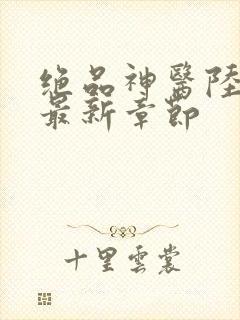 絕品神醫陸
最新章節
十里雲裳